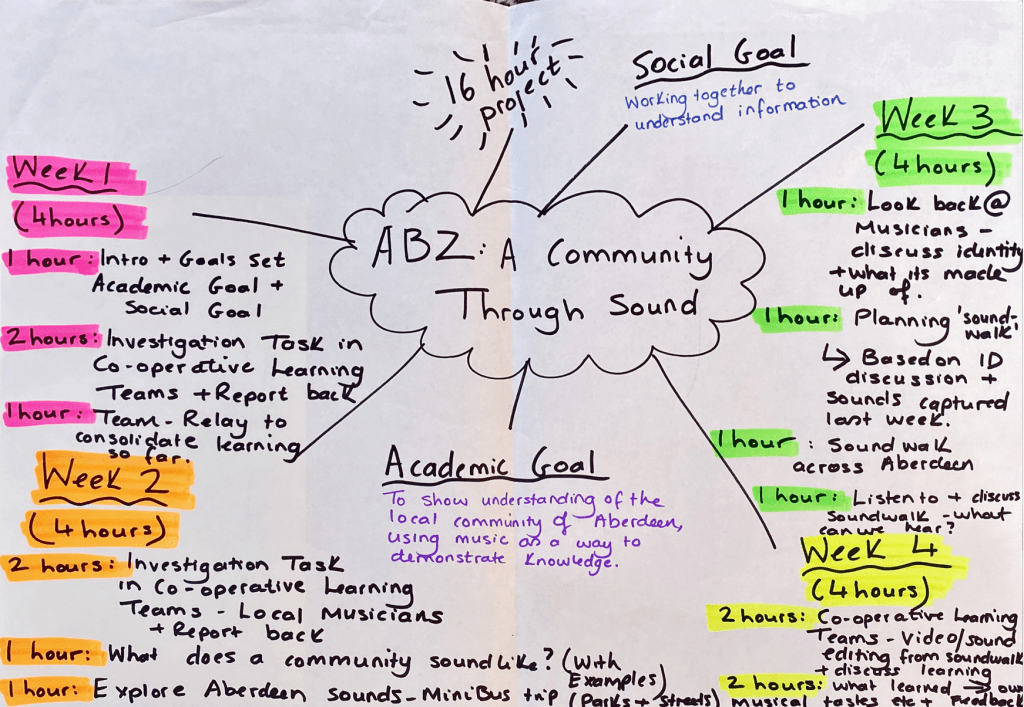 16 hour
project
Social Goal
Working together to
understand information
ABZ: A Community
Through Sound
Week 1
(4hours)
1 hour: Intro + Goals Set
Academic Goal +
Social Goal
2 hours: Investigation Task in
Co-operative Learning
Teams + Report back
1 hour: Team-Relay to
consolidate learning
so far.
Week 2
(4 hours)
2 hours: Investigation Task
in Co-operative Learning
Teams - Local Musicians
+ Report back
1 hour: What does a community sound like? (With
Examples)
1 hour: Explore Aberdeen sounds - MiniBus trip (Parks + Streets)
Academic Goal
To show understanding of the
local community of Aberdeen,
using music as a way to
demonstrate knowledge.
Week 3
(4 hours)
1 hour: Look back @
Musicians -
discuss identity
+ what its made
up of.
1 hour: Planning 'sound-
walk'
↳ Based on ID
discussion +
sounds captured
last week.
1 hour : Sound walk
across Aberdeen
1 hour: Listen to + discuss
Soundwalk - what
can we hear?
Week 4
(4 hours)
2 hours: Co-operative Learning
Teams - Video/sound
editing from soundwalk
+ discuss learning
2 hours: what learned → our
musical tastes etc + Feedback